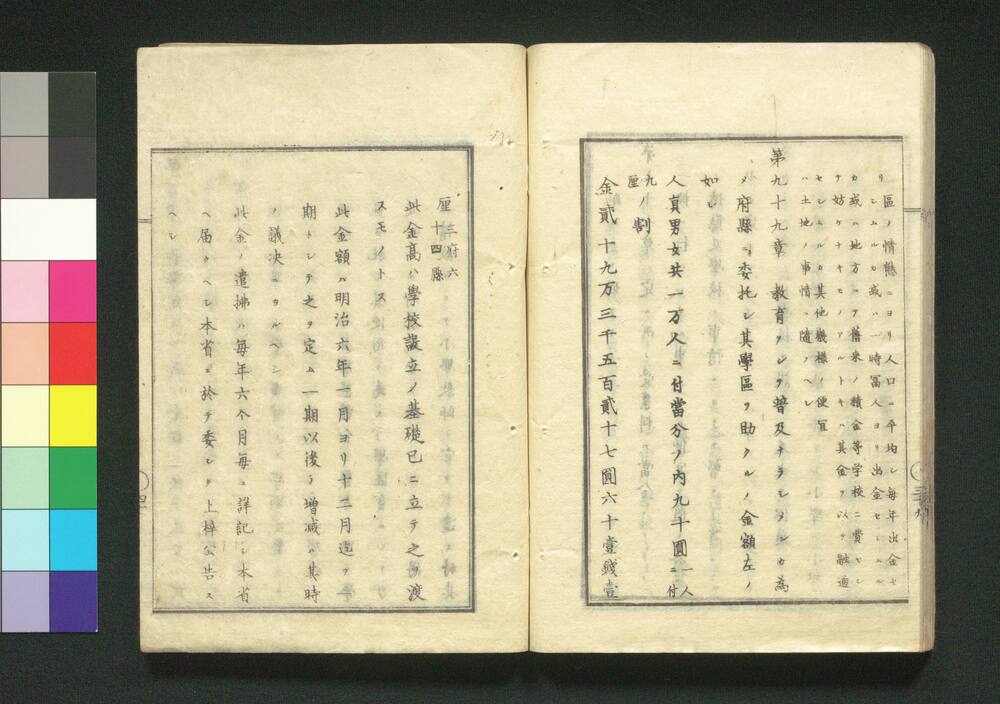 區ノ情態ニヨリ人口ニ平均シ毎年出金セ
リシムルカ或ハ一時冨人ヨリ出金セシムル
カ或ハ地方ニヲ舊来ノ積金等学校ニ費ヤシ
テ妨ケナキモノアルトキハ其金ヲ以テ融通
セシムルカ其他幾様ノ便冝
ハ土地ノ事情ニ隨フヘシ
第九十九章 教育ヲシテ普及ナラシメンカ為
メ府縣ニ委托シ其學區ヲ助クルノ金額左ノ
如シ
人員男女共一万人ニ付當分ノ内九十圓一人ニ付
九厘ノ割
金貳十九万三千五百貳十七圓六十壹錢壹
厘三府六十四縣
此金高ハ學校設立ノ基礎已ニ立テ之ヲ渡
スモノトス
此金額ハ明治六年一月ヨリ十二月迄ヲ
期トシテ之ヲ定ム一期以後ノ増減ハ其時
ノ議決ニヨルヘシ
此金ノ遣拂ハ毎年六个月毎ニ詳記シ本省
ヘ届クヘシ本省ニ於テ委シク上梓公告ス
ヘシ
三十九